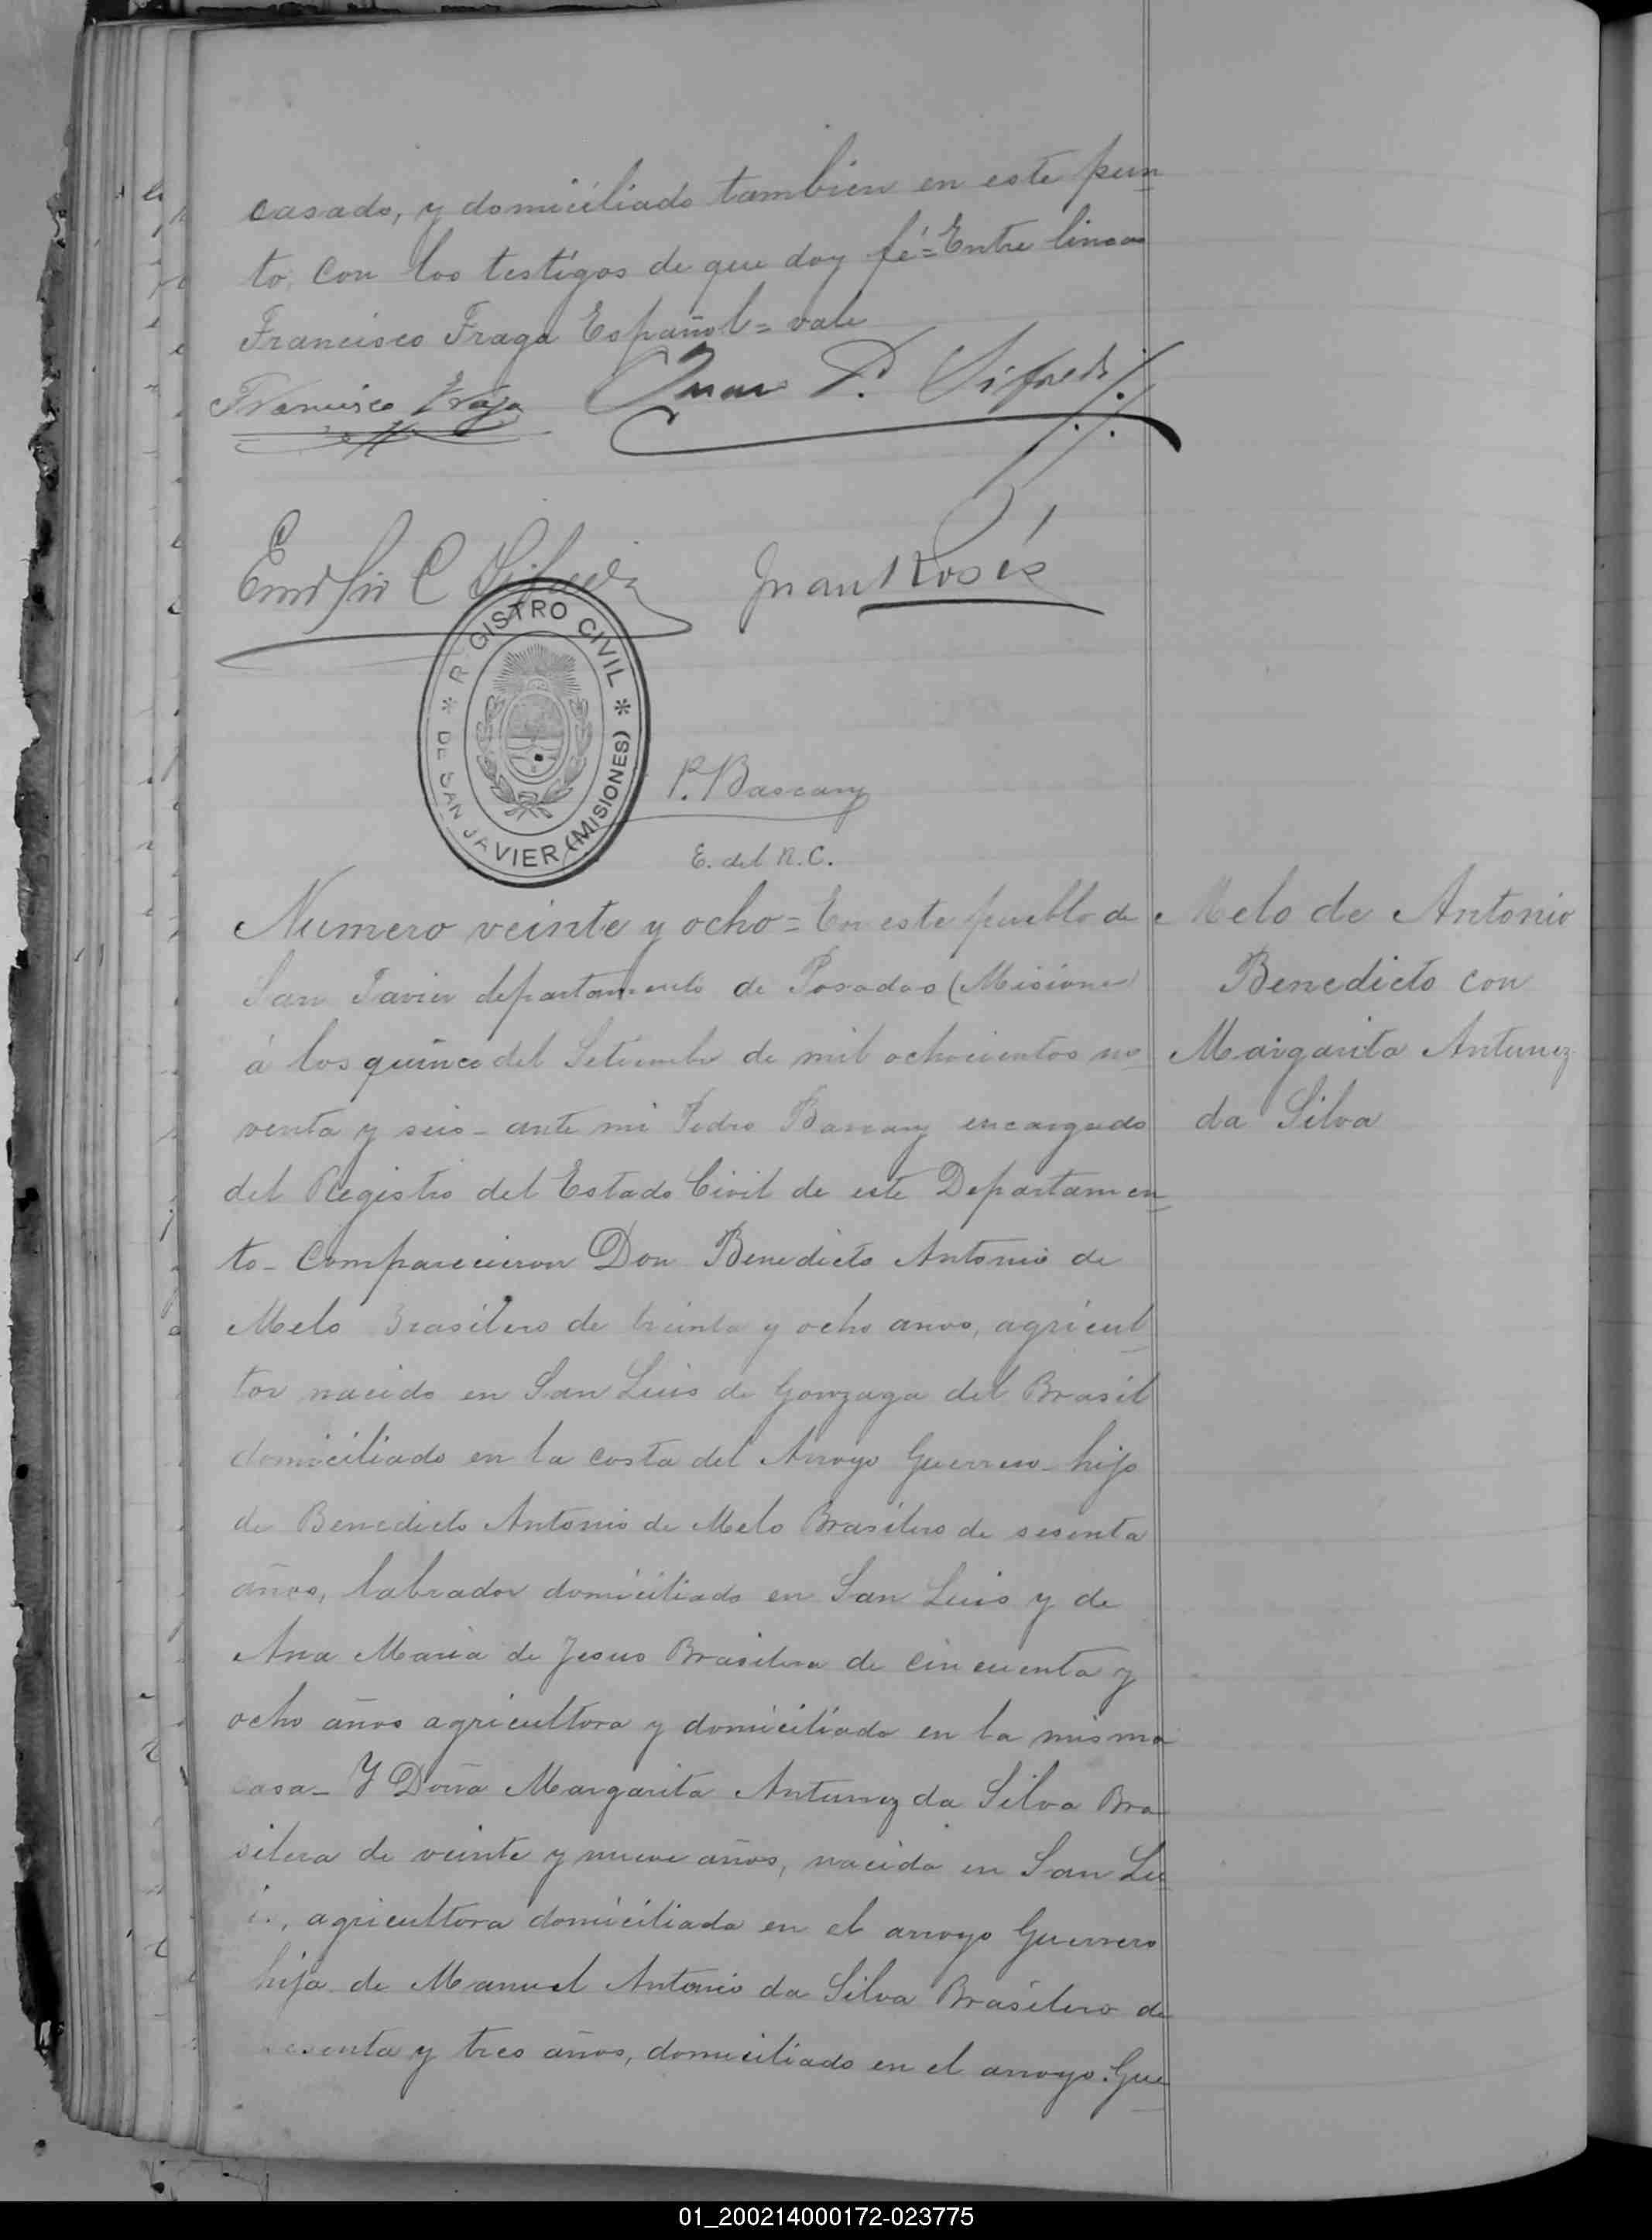 casado, y domiciliado tambien en este pun
to, con los testigos de que doy fé = Entre lineas
Francisco Fraga Español = vale
Francisco Fraga Juan P. Sifredi
Emilio C Sifredi Juan Rosés
R GISTRO CIVIL
* DE SAN JAVIER (MISIONES) *
P. Bascary
E. del R. C.
Numero veinte y ocho = En este pueblo de
San Javier departamento de Posadas (Misiones
á los quince del Setiembre de mil ochocientos no
venta y seis - ante mi Pedro Bascary encargado
del Registro del Estado Civil de este Departamen
to - Comparecieron Don Benedicto Antonio de
Melo Brasilero de treinta y ocho anos, agricul
tor nacido en San Luis de Gonzaga del Brasil
domiciliado en la costa del Arroyo Guerrero - hijo
de Benedicto Antonio de Melo Brasilero de sesenta
años, labrador domiciliado en San Luis y de
Ana Maria de Jesus Brasilera de cincuenta y
ocho años agricultora y domiciliada en la misma
casa - Y Doña Margarita Antunez da Silva Bra
silera de veinte y nueve años, nacida en San Lu
is, agricultora domiciliada en el arroyo Guerrero
hija de Manuel Antonio da Silva Brasilero de
sesenta y tres años, domiciliado en el arroyo Gue
Melo de Antonio
Benedicto con
Margarita Antunez
da Silva
01_200214000172-023775